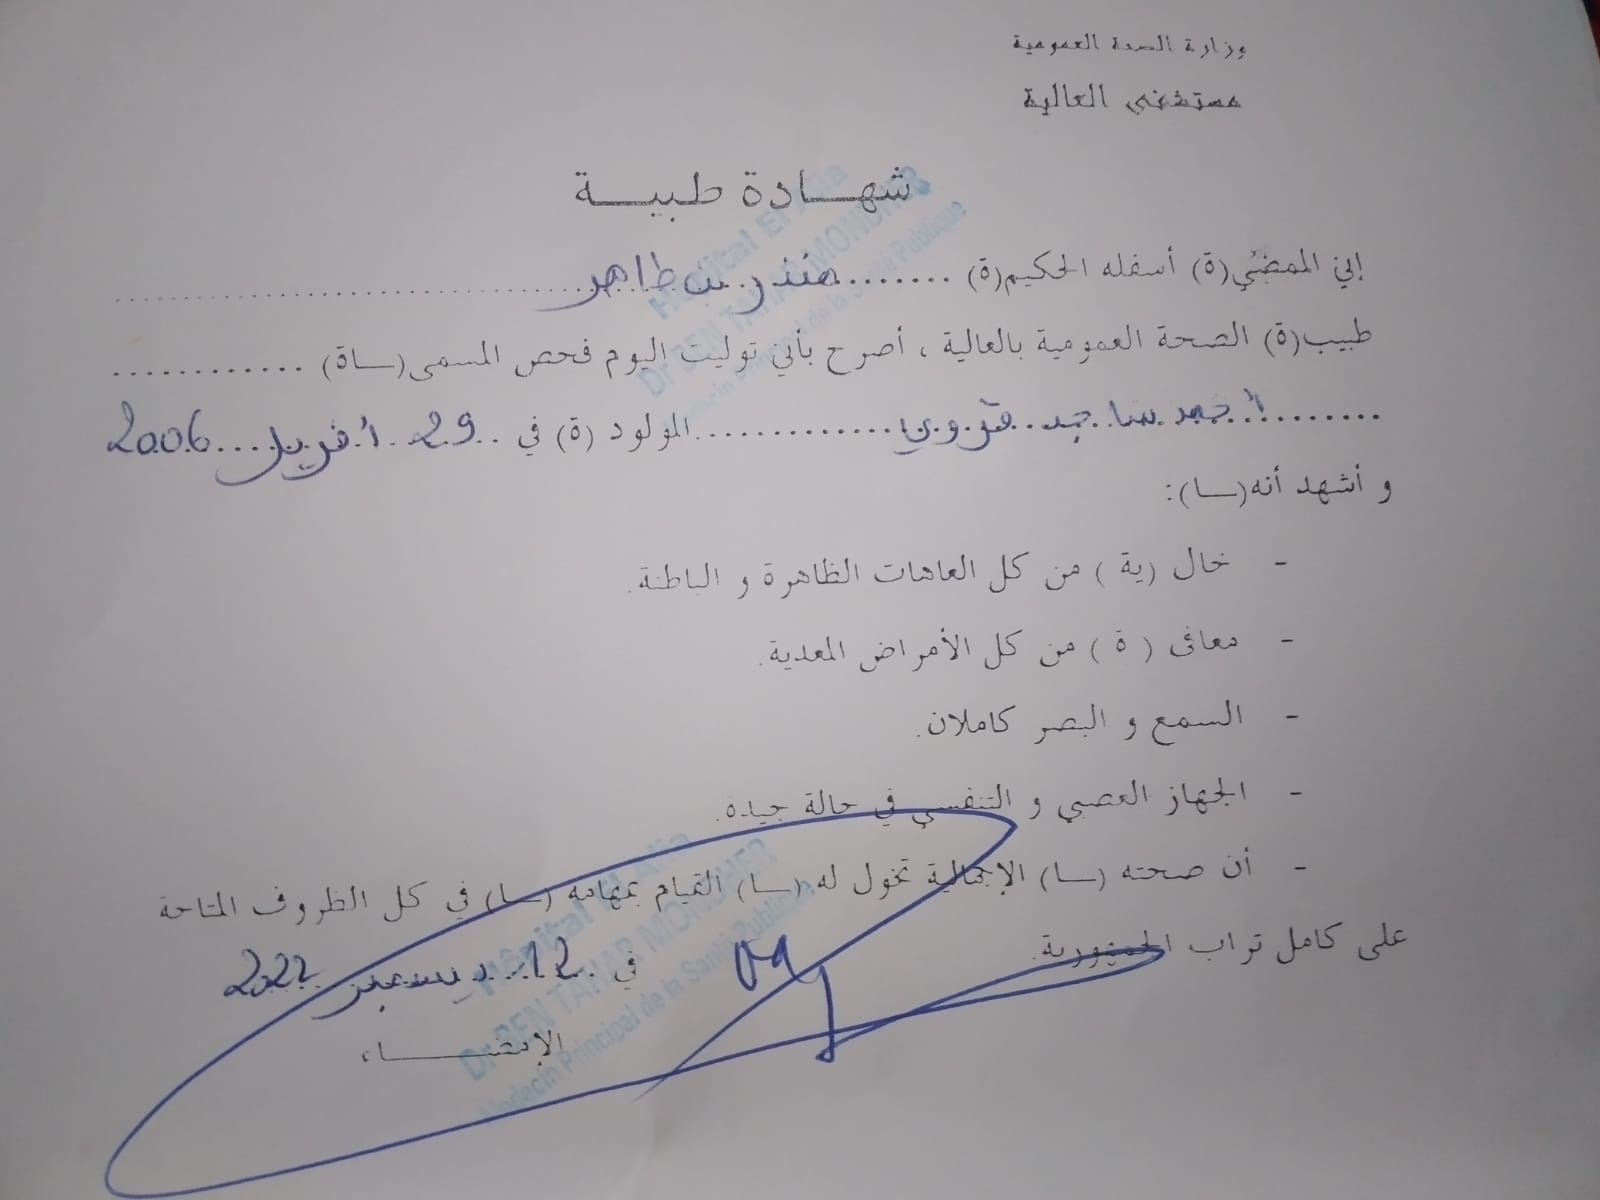 وزارة الصحة العمومية
مستشفى العالية
شهـــادة طبيـــة
إني الممضي(ة) أسفله الحكيم(ة) ....... منذر بن طاهر
طبيب(ة) الصحة العمومية بالعالية ، أصرح بأني توليت اليوم فحص المسمى(ـاة) ............
أحمد ساجد قروي المولود (ة) في 29 أفريل 2006
و أشهد أنه(ـا):
- خال (ية ) من كل العاهات الظاهرة و الباطنة.
- معافى ( ة ) من كل الأمراض المعدية.
- السمع و البصر كاملان.
- الجهاز العصبي و التنفسي في حالة جيدة.
- أن صحته (ـا) الإجمالية تخول له (ـا) القيام بمهامه (ـا) في كل الظروف المتاحة
على كامل تراب الجمهورية.
في 12 ديسمبر 2022
الإمضـــاء
Hôpital El Alia
Dr BEN TAHAR MONDHER
Médecin Principal de la Santé Publique
Hôpital El Alia
Dr BEN TAHAR MONDHER
Médecin Principal de la Santé Publique